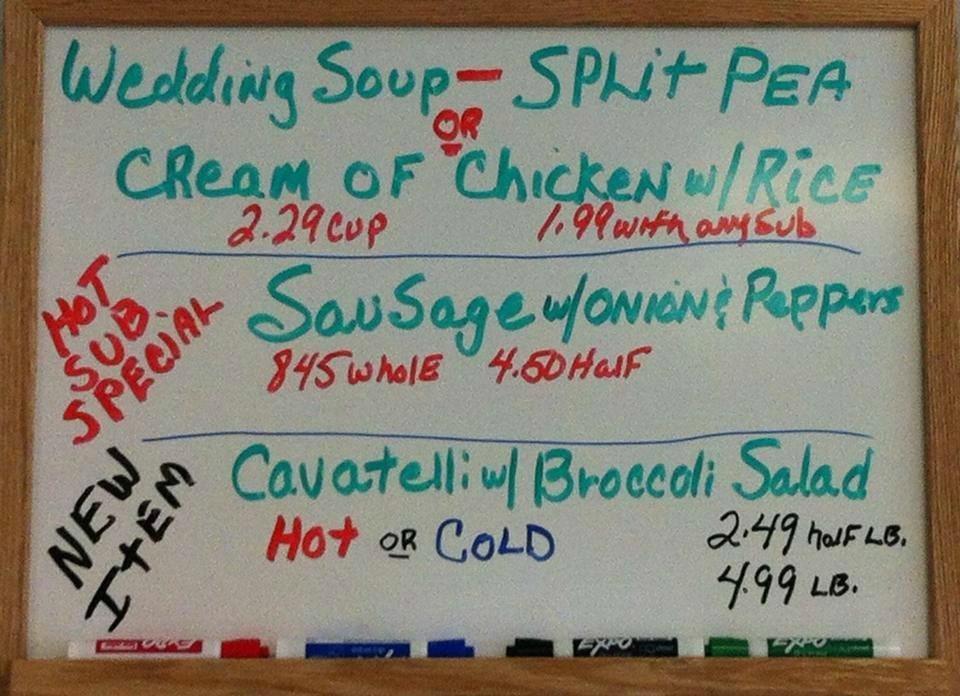 Wedding Soup - SPLit PEA
OR
CReam OF Chicken w/ RiCE
2.29 cup 1.99 with any sub
HOT SUB SPECIAL
Sausage w/ ONION & Peppers
845 wholE 4.50 HalF
NEW ItEM
Cavatelli w/ Broccoli Salad
Hot OR COLD
2.49 halF LB.
4.99 LB.
EXPO EXPO